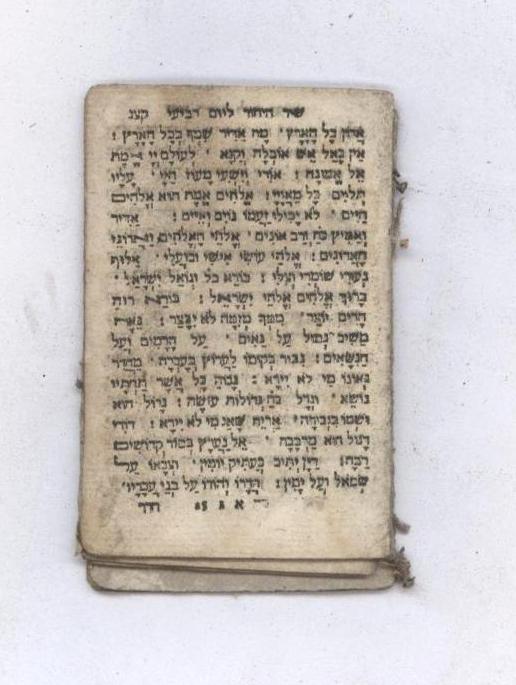 שיר היחוד ליום רביעי קצג
אדון כל הָאָרֶץ׳ מָה אַדִיר שִׁמְךָ בְּכָל הָאָרֶץ :
אֵין כָּאֵל אֵשׁ אוֹכְלָה וְקַנָּא ׳ לְעוֹלָם יְיָ
אַל : אוֹרִי וְיִשְׁעִי מָעוֹז חַיַּי ׳ עָלָיו
תְּלוּיִם כָּל מַאֲוַיָּי : אֱלֹהִים אֱמֶת הוּא אֱלֹהִים
חַיִּים ׳ לֹא יָכִילוּ זַעְמוֹ גּוֹיִם וְאִיִּים : אַדִּיר
וְאַמִּיץ כֹּחַ וְרַב אוֹנִים ׳ אֱלֹהֵי הָאֱלֹהִים וַאֲדוֹנֵי
הָאֲדוֹנִים : אֱלֹהַי עוֹשַׂי אִישִׁי וּבוֹעֲלִי ׳ אַלּוּף
נְעוּרַי שׁוֹמְרִי : בּוֹרֵא כל וְגוֹאֵל יִשְׂרָאֵל ׳
בָּרוּךְ אֱלֹהִים אֱלֹהֵי יִשְׂרָאֵל : בּוֹרֵא רוּחַ
הָרִים יוֹצֵר ׳ מִמְּךָ מְזִמָּה לֹא יִבָּצֵר :
מֵשִׁיב גְּמוּל עַל גֵּאִים ׳ עַל הָרָמִים וְעַל
הַנִּשָּׂאִים : גִּבּוֹר בְּקוּמוֹ לַעֲרוֹץ בְּעֶבְרָה ׳ מֵהֲדַר
גְּאוֹנוֹ מִי לֹא יִירָא : גָּבוֹהַּ כָּל אֲשֶׁר תַּחְתָּיו
נוֹשֵׂא ׳ וּגְדָל כֹּחַ גְּדוֹלוֹת עוֹשֶׂה : גָּדוֹל הוּא
וּשְׁמוֹ בִּגְבוּרָה ׳ אַרְיֵה שָׁאָג מִי לֹא יִירָא : דּוֹדִי
דָּגוּל הוּא מֵרְבָבָה ׳ אֵל נַעֲרָץ בְּסוֹד קְדוֹשִׁים
רַבָּה : דַּיָּן יָתִיב כְּעַתִּיק יוֹמִין ׳ וּצְבָאוֹ עַל
שְׂמֹאל וְעַל יָמִין : הֲדָרוֹ וְהוֹדוֹ עַל בְּנֵי עֲבָדָיו ׳
הדר